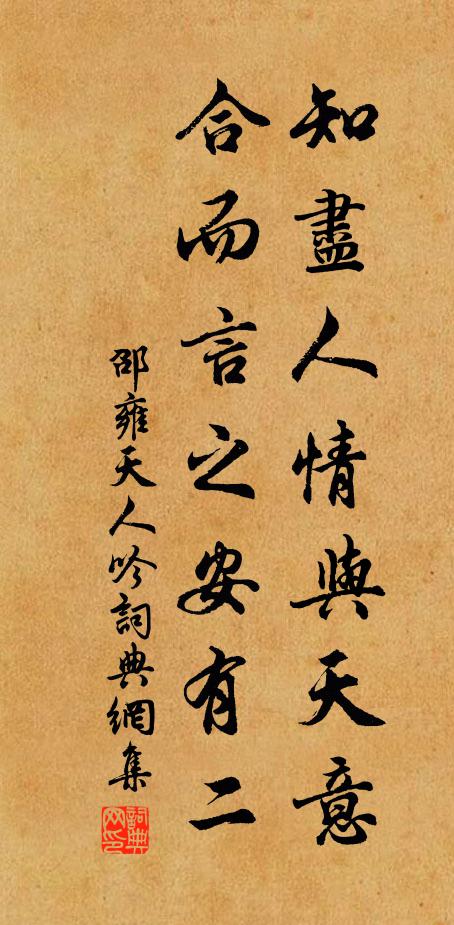 知盡人情與天意
合而言之安有二
邵雍天人吟詞典網集
詞典网印